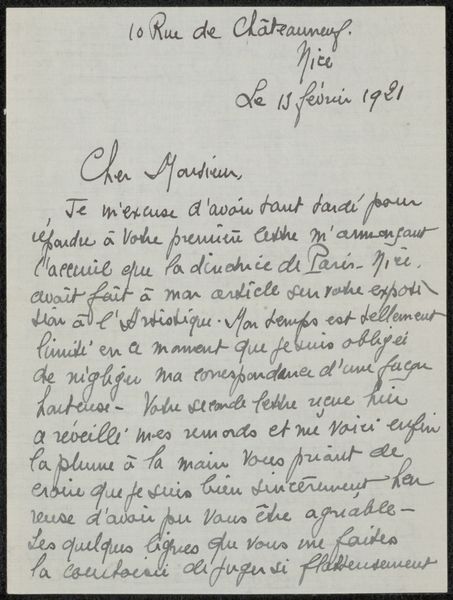 10 Rue de Châteauneuf.
Nice
Le 13 février 1921
Cher Monsieur,
Je m'excuse d'avoir tant tardé pour
répondre à votre première lettre m'annonçant
l'accueil que la directrice de Paris-Nice.
avait fait à mon article sur votre exposi
tion à l'Artistique. Mon temps est tellement
limité en ce moment que je suis obligée
de négliger ma correspondance d'une façon
honteuse - Votre seconde lettre reçue hier
a réveillé mes remords et me voici enfin
la plume à la main vous priant de
croire que je suis bien sincèrement heu
reuse d'avoir pu vous être agréable -
Les quelques lignes que vous me faites
la courtoisie de juger si flatteusement